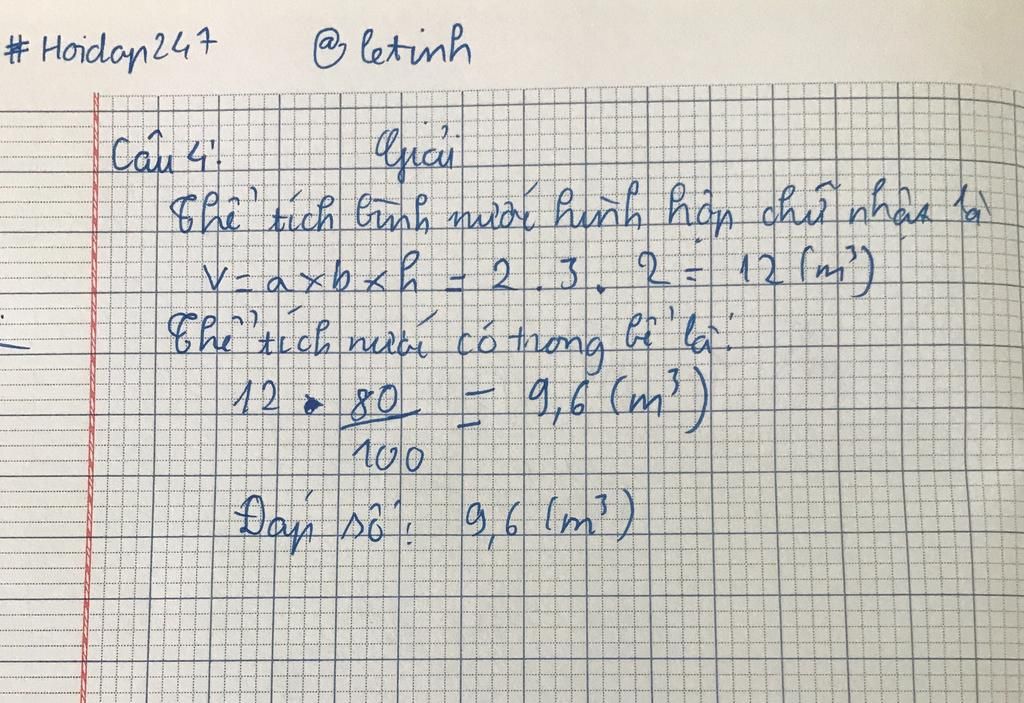 #Hoidap247 @letinh
Câu 4: Giải
Thể tích bình nước hình hộp chữ nhật là
V = a x b x h = 2 . 3 . 2 = 12 (m³)
Thể tích nước có trong bể là:
12 . 80/100 = 9,6 (m³)
Đáp số: 9,6 (m³)